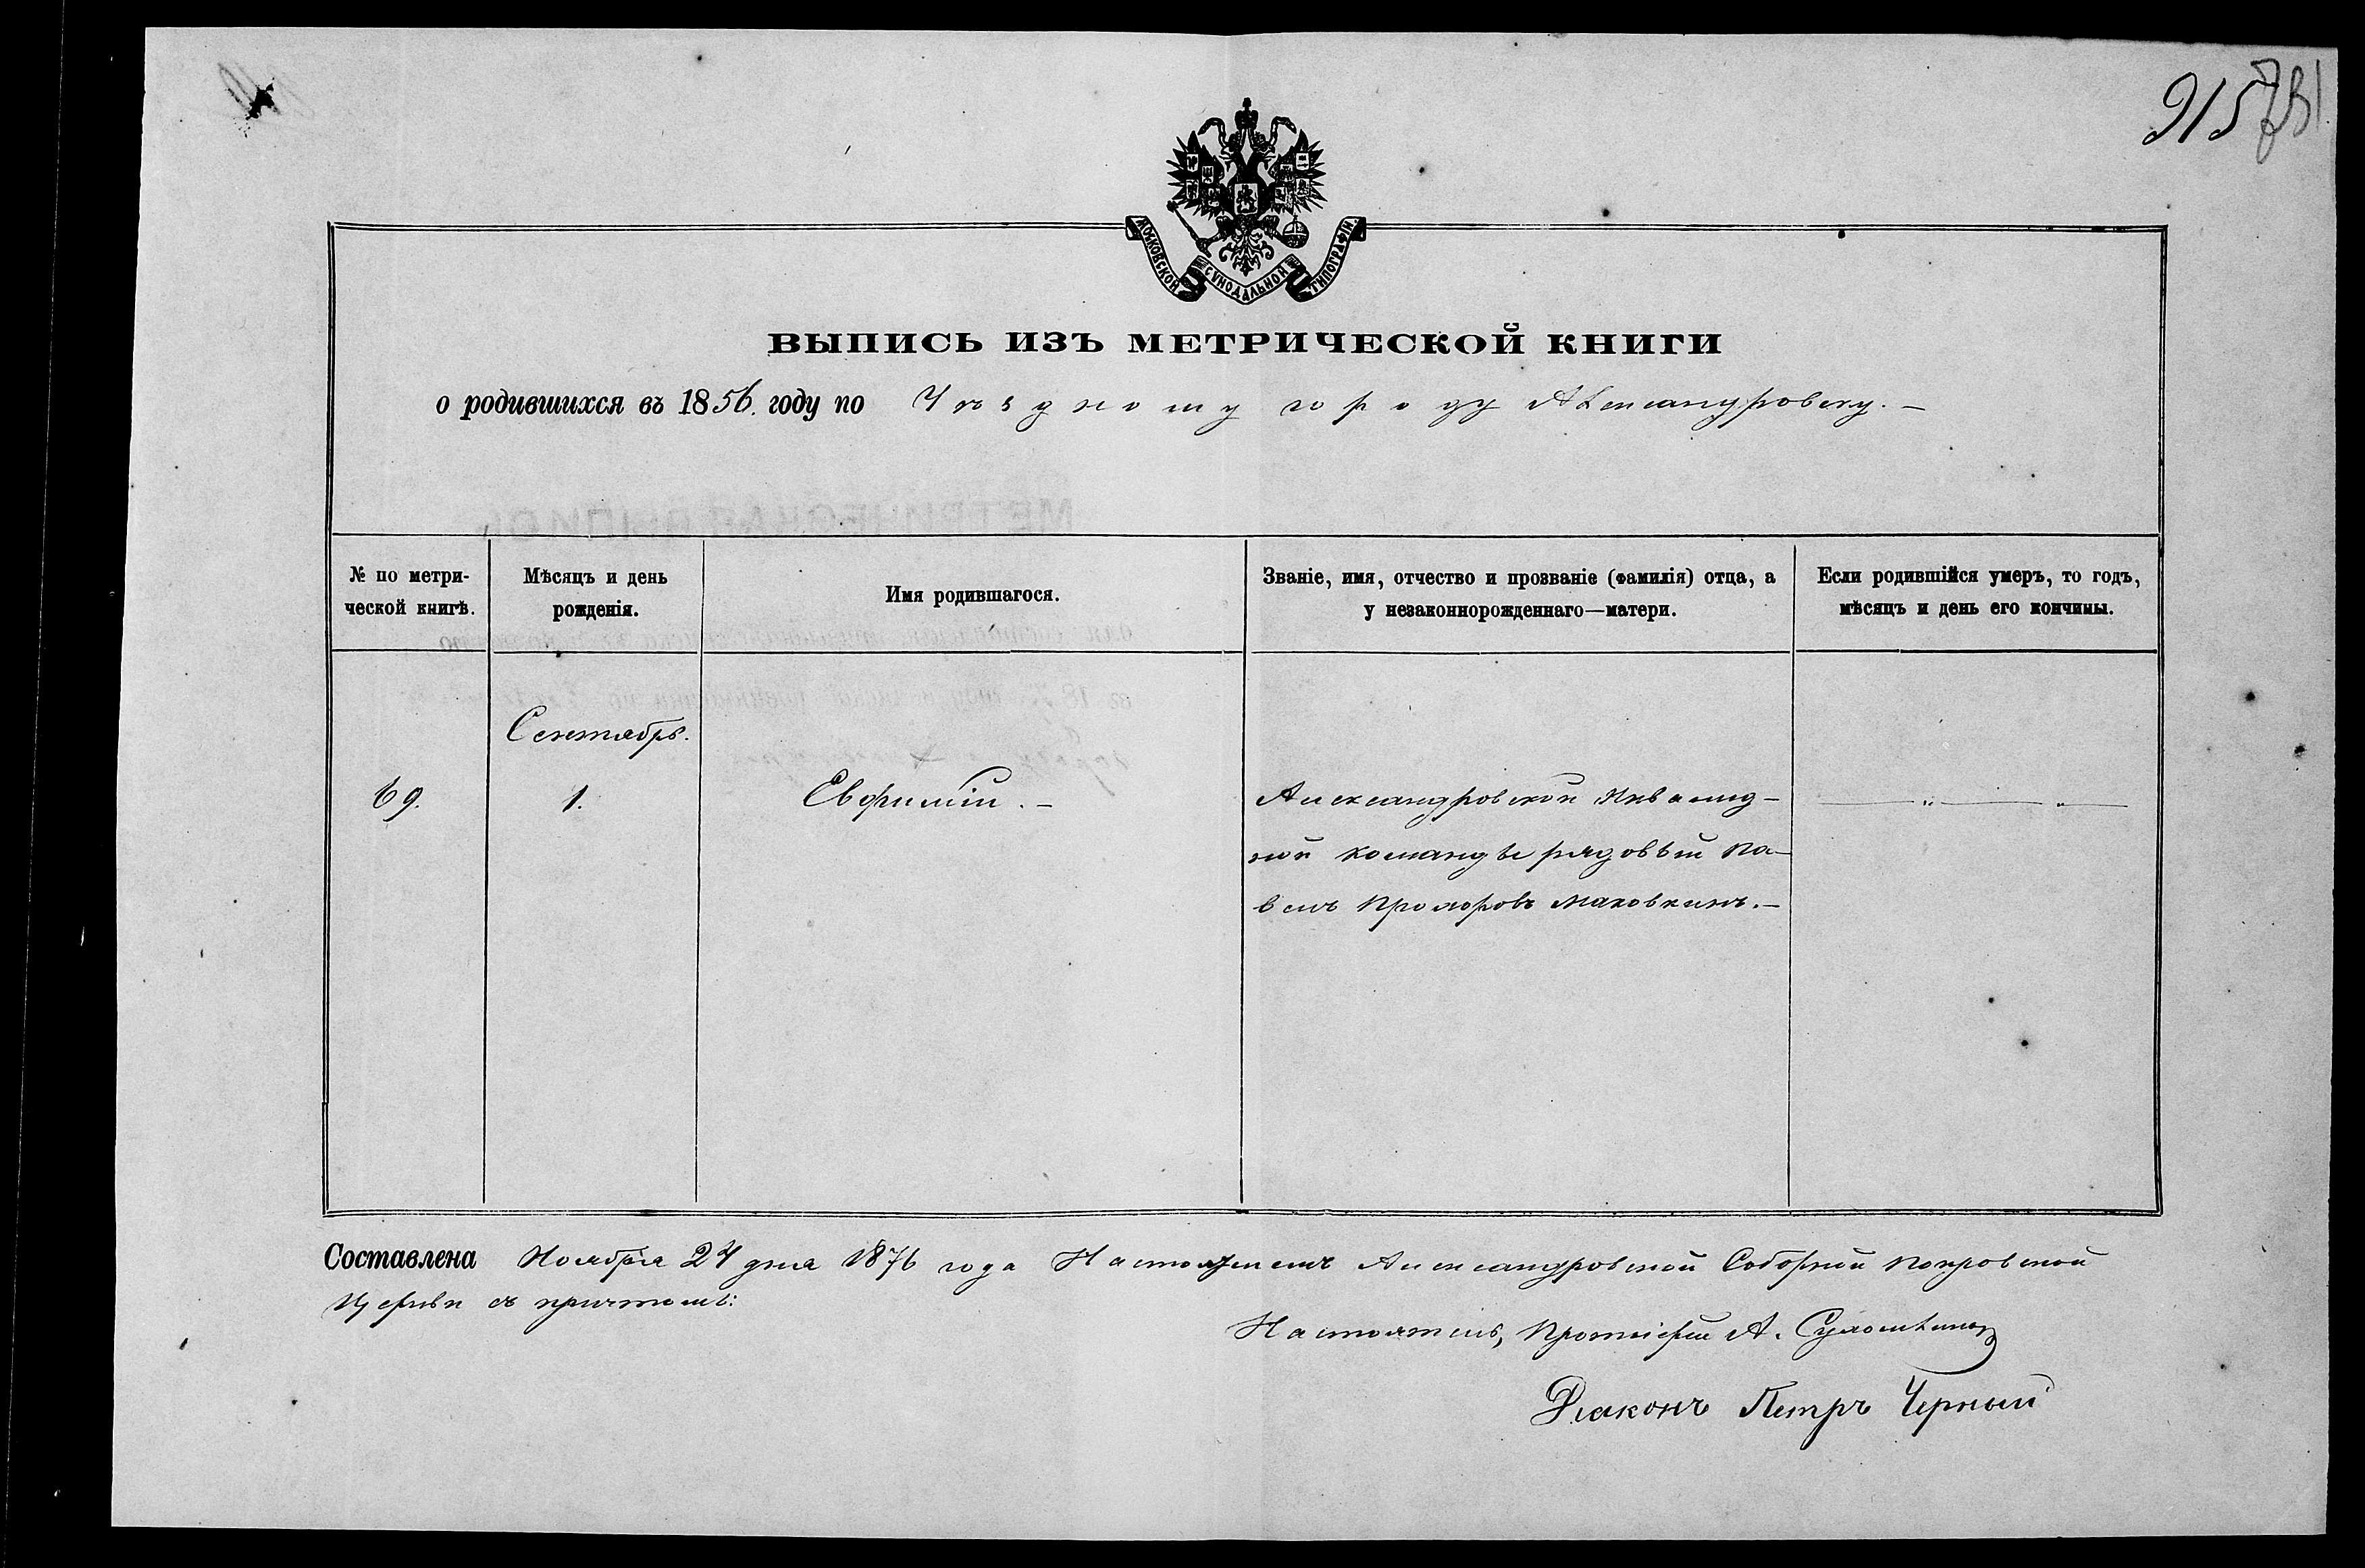 915
МОСКОВСКОЙ СѴНОДАЛЬНОЙ ТИПОГРАФІИ.
ВЫПИСЬ ИЗЪ МЕТРИЧЕСКОЙ КНИГИ
о родившихся въ 1856. году по Уѣздному городу Александровску. —
№ по метри-
ческой книгѣ.
Мѣсяцъ и день
рожденія.
Имя родившагося.
Званіе, имя, отчество и прозваніе (фамилія) отца, а
у незаконнорожденнаго—матери.
Если родившійся умеръ, то годъ,
мѣсяцъ и день его кончины.
Сентябрь.
69.
1.
Евфимій. —
Александровской Инвалид-
ной команды рядовый Па-
велъ Прохоровъ Маховкинъ. —
Составлена Ноября 24 дня 1876 года Настоятелемъ Александровской Соборной Покровской
Церкви съ причтомъ:
Настоятель, Протоіерей А.
Діаконъ Петръ Черный